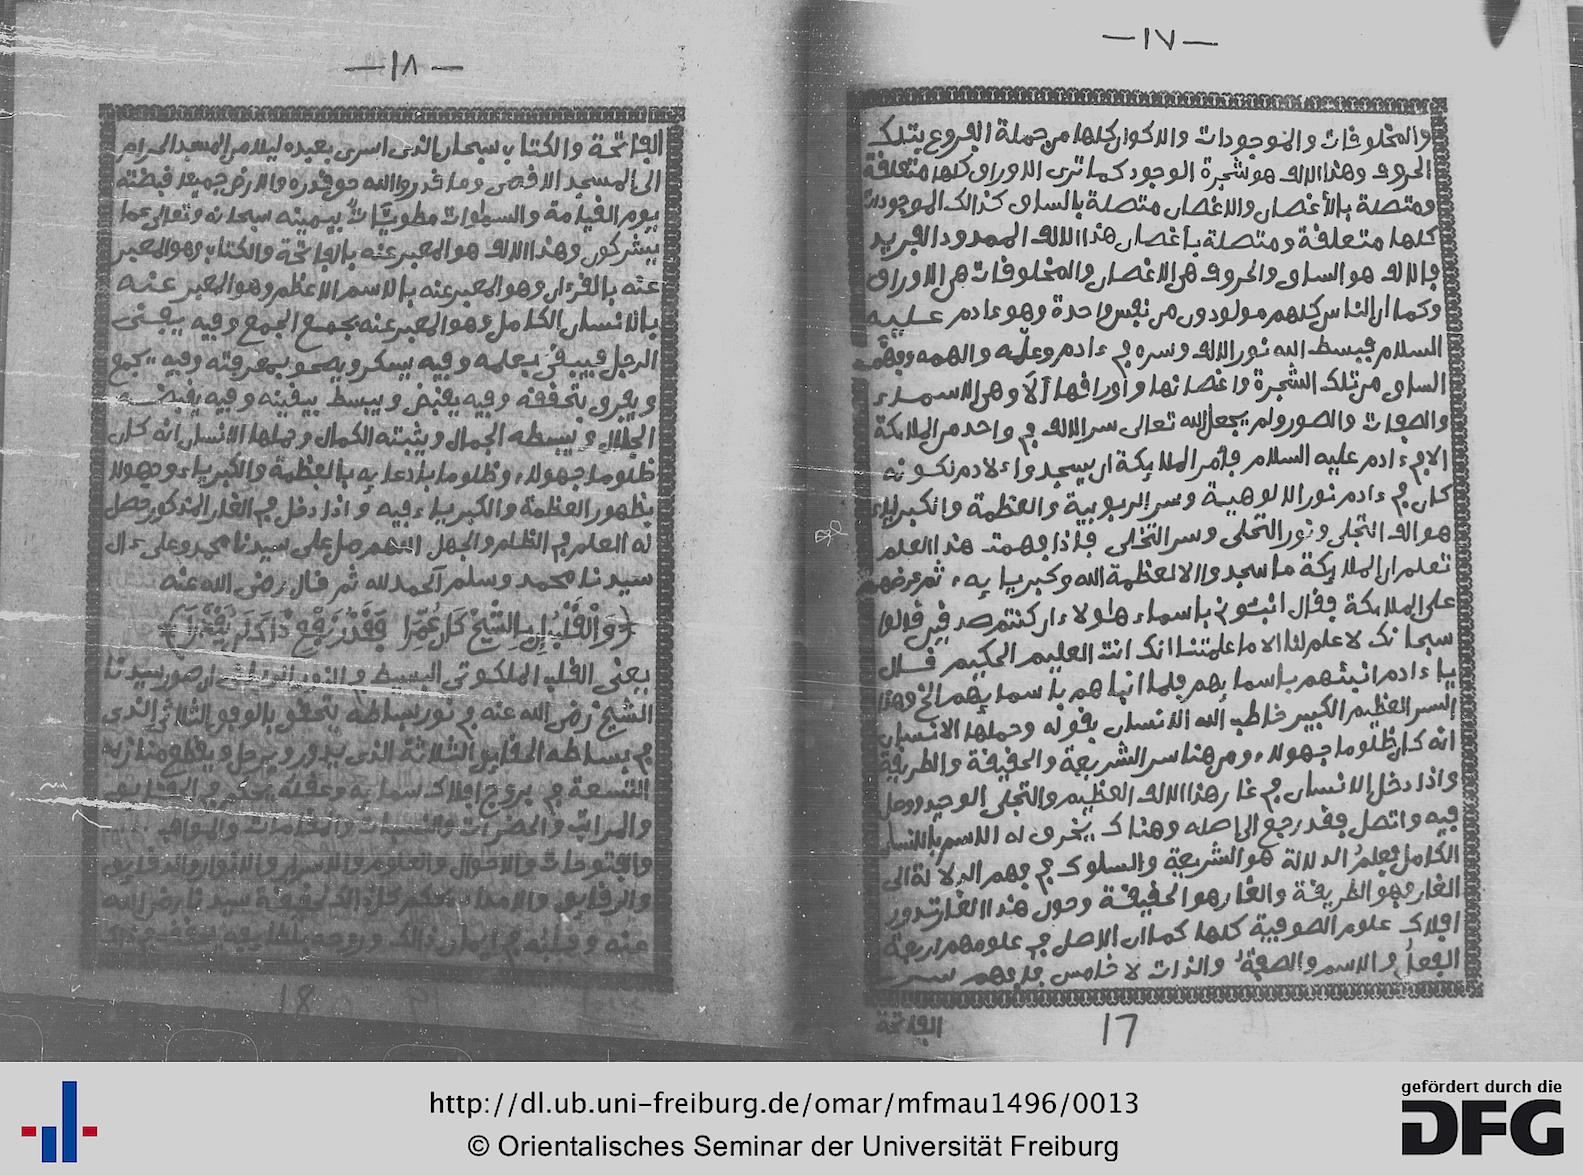 —١٧—
والمخلوقات والموجودات والاكوان كلها من جملة الفروع بتلك
الحروف وهذا الالف هو شجرة الوجود كما ترى الاوراق كلها متعلقة
ومتصلة بالأغصان والاغصان متصلة بالساق كذالك الموجودات
كلها متعلقة ومتصلة بأغصان هذا الالف الممدود الفريد
فالالف هو الساق والحروف هي الاغصان والمخلوقات هي الاوراق
وكما ان الناس كلهم مولودون من نفس واحدة وهو ءادم عليه
السلام فبسط الله نور الالف وسره في ءادم وعلمه والهمه وفهمه
الساق من تلك الشجرة واغصانها وأوراقها ألا وهي الاسماء
والصفات والصور ولم يجعل الله تعالى سر الالف في واحد من الملائكة
الا في ءادم عليه السلام فأمر الملائكة ان يسجدوا ءلادم لكونه
كان في ءادم نور الالوهية وسر الربوبية والعظمة والكبرياء
هو الف التجلي ونور التحلى وسر التخلى فاذا فهمت هذا العلم
تعلم ان الملائكة ما سجدوا الا لعظمة الله وكبريايه، ثم عرضهم
على الملائكة فقال انبئوني باسماء هاولاء ان كنتم صدقين قالوا
سبحانك لا علم لنا الا ما علمتنا انك انت العليم الحكيم قال
ياءادم انبئهم باسمايهم فلما انباهم باسمايهم الخ وهذا
السر العظيم الكبير خاطب الله الانسان بقوله وحملها الانسان
انه كان ظلوما جهولا، ومن هنا سر الشريعة والحقيقة والطريقة
واذا دخل الانسان في غار هذا الالف العظيم والتجلى الوحيد ووصل
فيه واتصل فقد رجع الى اصله وهناك يخرق له الاسم بالانسان
الكامل فعلم الدلالة هو الشريعة والسلوك في فهم الدلالة الى
الغار فهو الطريقة والغار هو الحقيقة وحول هذا الغار تدور
افلاك علوم الصوفية كلها كما ان الاصل في علومهم اربعة
الفعل والاسم والصفة والذات لا خامس فافهم سر
الفاتحة
17
—١٨—
الفاتحة والكتاب سبحان الذى اسرى بعبده ليلا من المسجد الحرام
الى المسجد الاقصى وما قدروا الله حق قدره والارض جميعا قبضته
يوم القيامة والسماوات مطويات بيمينه سبحانه وتعالى عما
يشركون وهذا الالف هو المعبر عنه بالفاتحة والكتاب وهو المعبر
عنه بالقرءان وهو المعبر عنه بالاسم الاعظم وهو المعبر عنه
بالانسان الكامل وهو المعبر عنه بجمع الجمع وفيه يفنى
الرجل فيبقى بعلمه وفيه يسكر ويصحو بمعرفته وفيه يجمع
ويفرق بتحققه وفيه يقبض ويبسط بيقينه وفيه يقبضه
الجلال ويبسطه الجمال ويثبته الكمال وحملها الانسان انه كان
ظلوما جهولا، وظلوما بادعايه بالعظمة والكبرياء وجهولا
بظهور العظمة والكبرياء فيه واذا دخل في الغار المذكور حصل
له العلم في الظلم والجهل اللهم صل على سيدنا محمد وعلى ءال
سيدنا محمد وسلم الحمد لله ثم قال رضي الله عنه
يعنى القلب الملكوتى البسيط
الشيخ رضى الله عنه في نور بساطه يتحقق بالوفق الثلاثى الذى
في بساطه الحقايق الثلاثة الذى يدور ويرحل ويقطع منازله
التسعة في بروج افلاك سمايه وعقله
والمراتب والحضرات والنسبات والمقامات والمواهب
والفتوحات والاحوال والعلوم والاسرار والانوار والدقايق
والرقايق
18
http://dl.ub.uni-freiburg.de/omar/mfmau1496/0013
© Orientalisches Seminar der Universität Freiburg
gefördert durch die
DFG